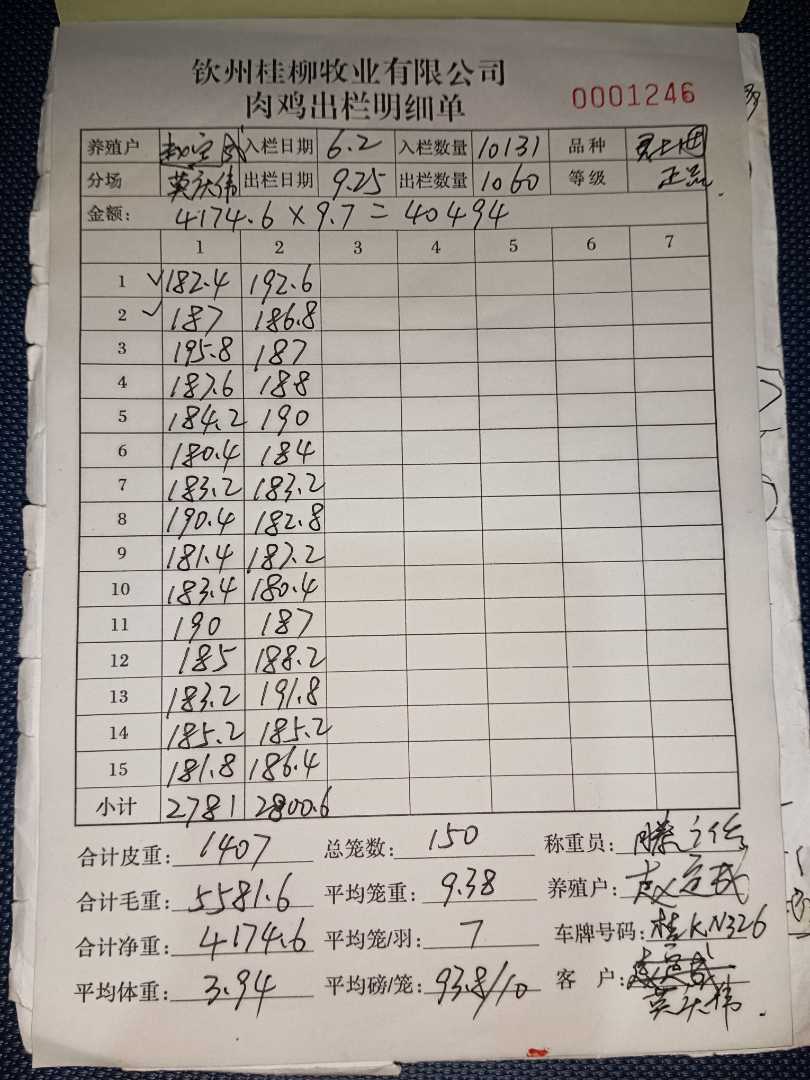 钦州桂柳牧业有限公司
肉鸡出栏明细单 0001246
养殖户 入栏日期 6.2 入栏数量 10131 品种
分场 英庆伟 出栏日期 9.25 出栏数量 1060 等级 正品
金额: 4174.6 × 9.7 = 40494
1 2 3 4 5 6 7
1 ✓ 182.4 192.6
2 ✓ 187 186.8
3 195.8 187
4 187.6 188
5 184.2 190
6 180.4 184
7 183.2 183.2
8 190.4 182.8
9 181.4 187.2
10 183.4 180.4
11 190 187
12 185 188.2
13 183.2 191.8
14 185.2 185.2
15 181.8 186.4
小计 2781 2800.6
合计皮重: 1407 总笼数: 150 称重员:
合计毛重: 5581.6 平均笼重: 9.38 养殖户:
合计净重: 4174.6 平均笼/羽: 7 车牌号码: 桂KN326
平均体重: 3.94 平均磅/笼: 93.8/10 客 户:
英庆伟